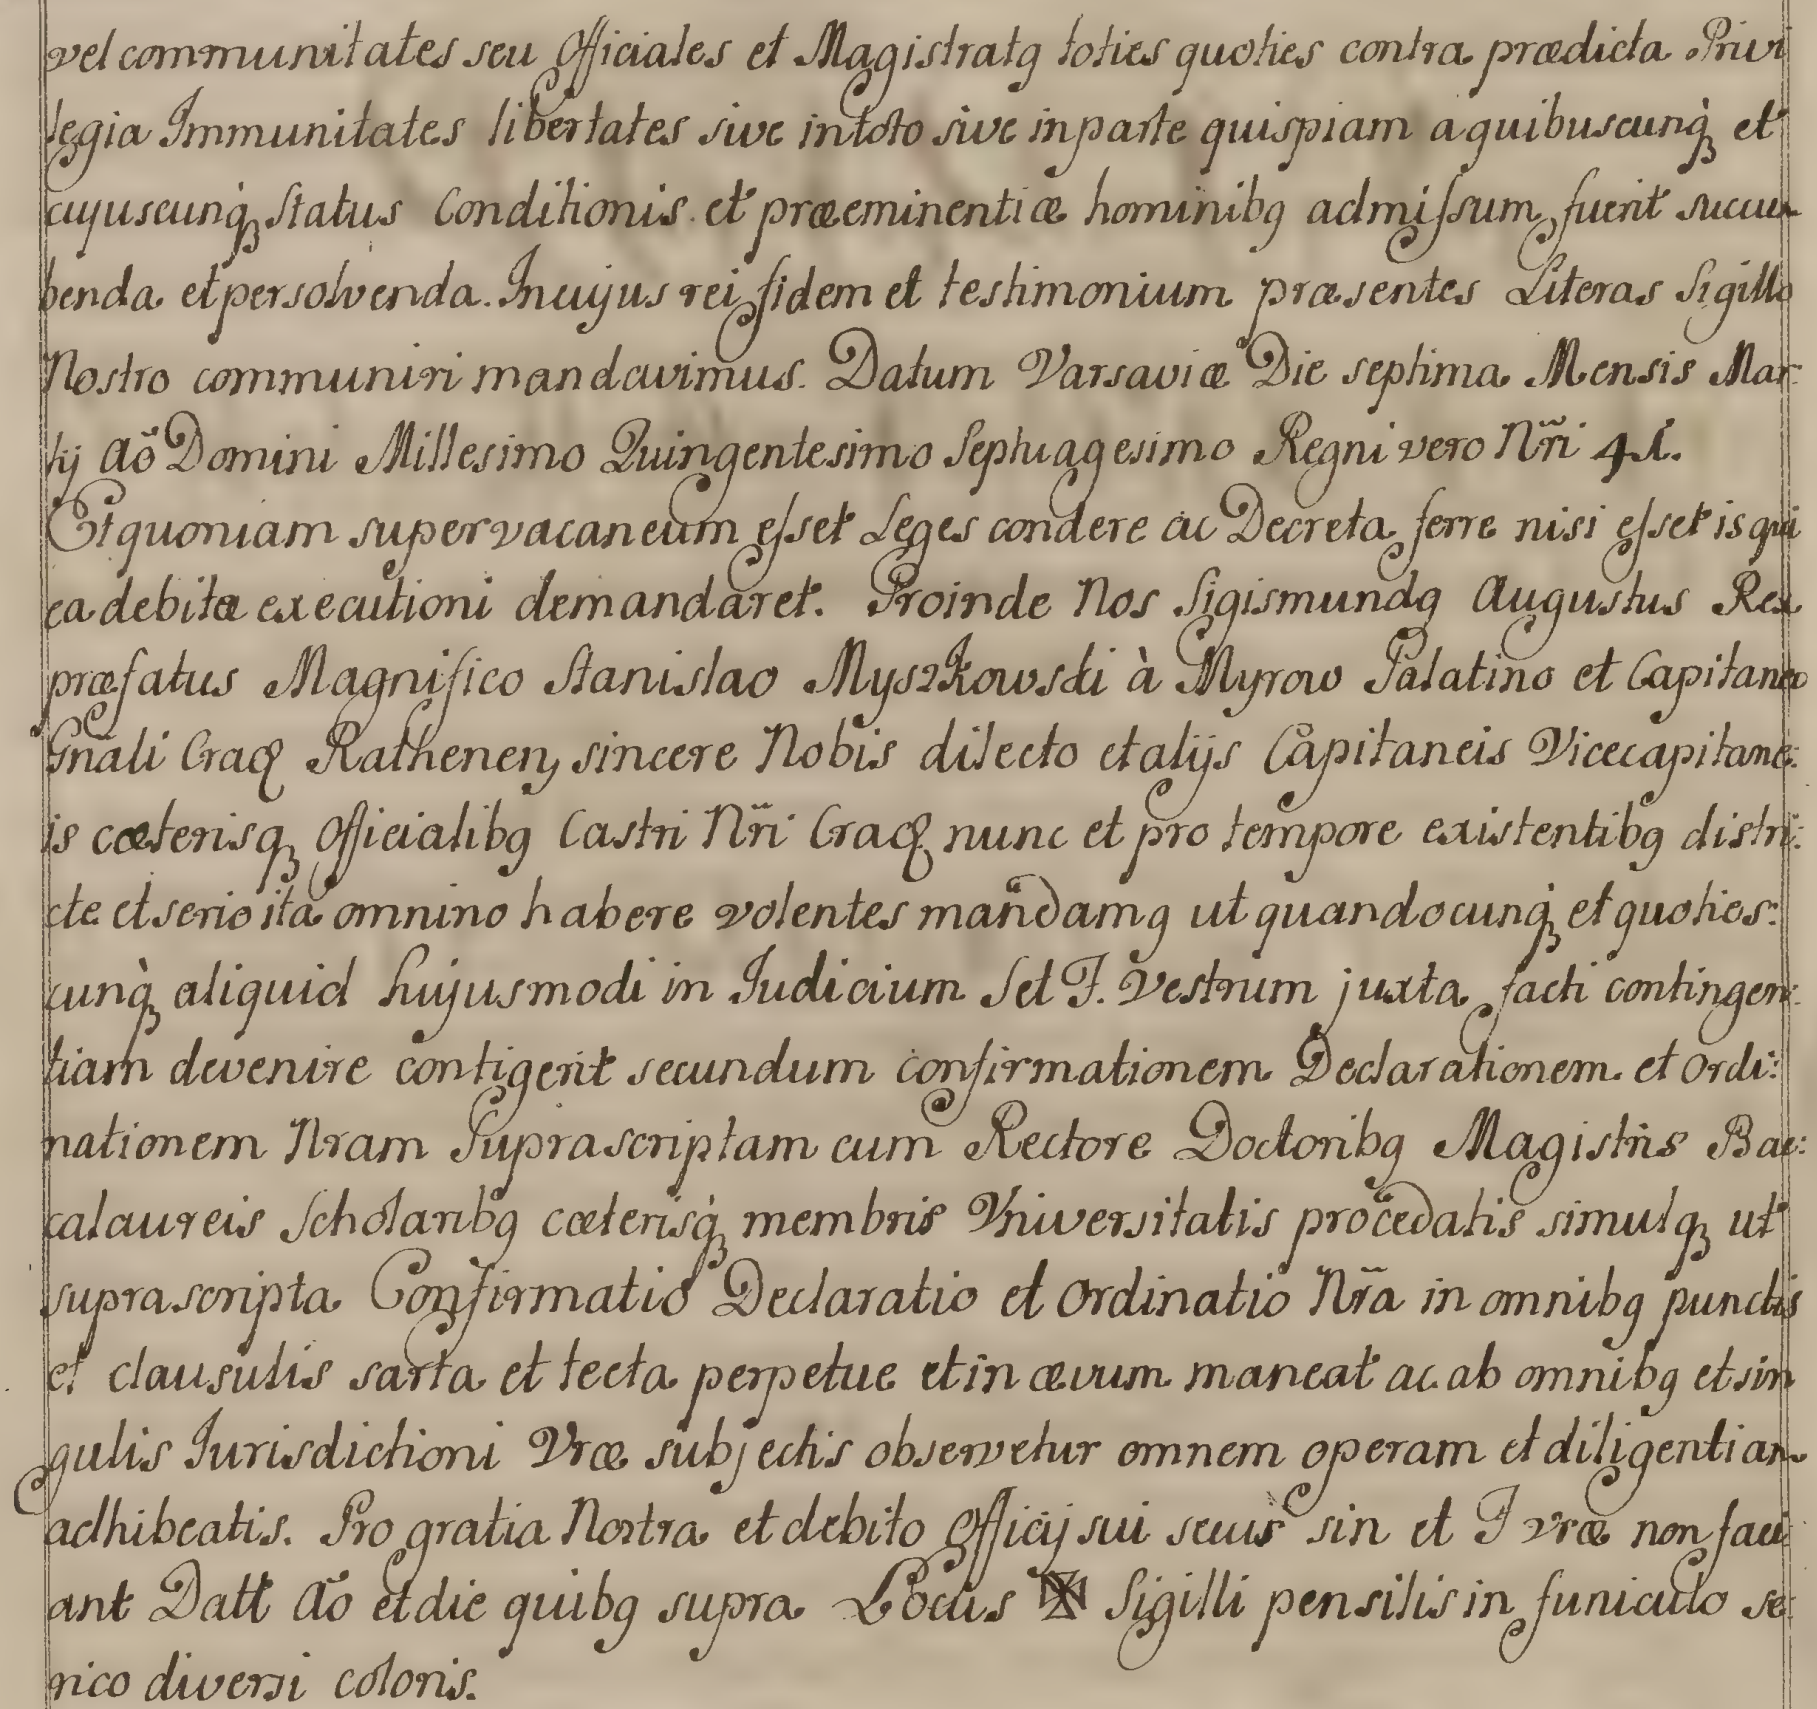 vel communitates seu Officiales et Magistratꝯ toties quoties contra prædicta Privi
legia Immunitates libertates sive in toto sive in parte quispiam a quibuscunq̀ꝫ et
cujuscunq̀ꝫ Status Conditionis et præeminentiæ hominibꝯ admiſsum fuerit succum
benda et persolvenda. In cujus rei fidem et testimonium præsentes Literas Sigillo
Nostro communiri mandavimus. Datum Varsaviæ Die septima Mensis Mar:
tij Aõ Domini Millesimo Quingentesimo Septuagesimo Regni vero Nr̃i 41.
Et quoniam supervacaneum eſset Leges condere ac Decreta ferre nisi eſset is qui
ea debitæ executioni demandaret. Proinde Nos Sigismundꝯ Augustus Rex
præfatus Magnifico Stanislao Myszkowski à Myrow Palatino et Capitaneo
Gnãli Cracꝭ Rathenen, sincere Nobis dilecto et alijs Capitaneis Vicecapitane:
is cæterisqꝫ Officialibꝯ Castri Nr̃i Cracꝭ nunc et pro tempore existentibꝯ distri:
cte et serio ita omnino habere volentes mandamꝯ ut quandocunq̀ꝫ et quoties:
cunq̀ꝫ aliquid hujusmodi in Iudicium S et F. Vestrum juxta facti contingen:
tiam devenire contigerit secundum confirmationem Declarationem et Ordi:
nationem Nram Suprascriptam cum Rectore Doctoribꝯ Magistris Bac:
calaureis Scholaribꝯ cæterisq̀ꝫ membris Vniversitatis procedatis simulqꝫ ut
suprascripta Confirmatio Declaratio et Ordinatio Nr̃a in omnibꝯ punctis
et clausulis sarta et tecta perpetue et in ævum maneat ac ab omnibꝯ et sin
gulis Iurisdictioni Vræ subjectis observetur omnem operam et diligentiam
adhibeatis. Pro gratia Nostra et debito Officij sui secus sin et F vræ non faci
ant Datt Aõ et die quibꝯ supra Locus Sigilli pensilis in funiculo se:
rico diversi coloris.